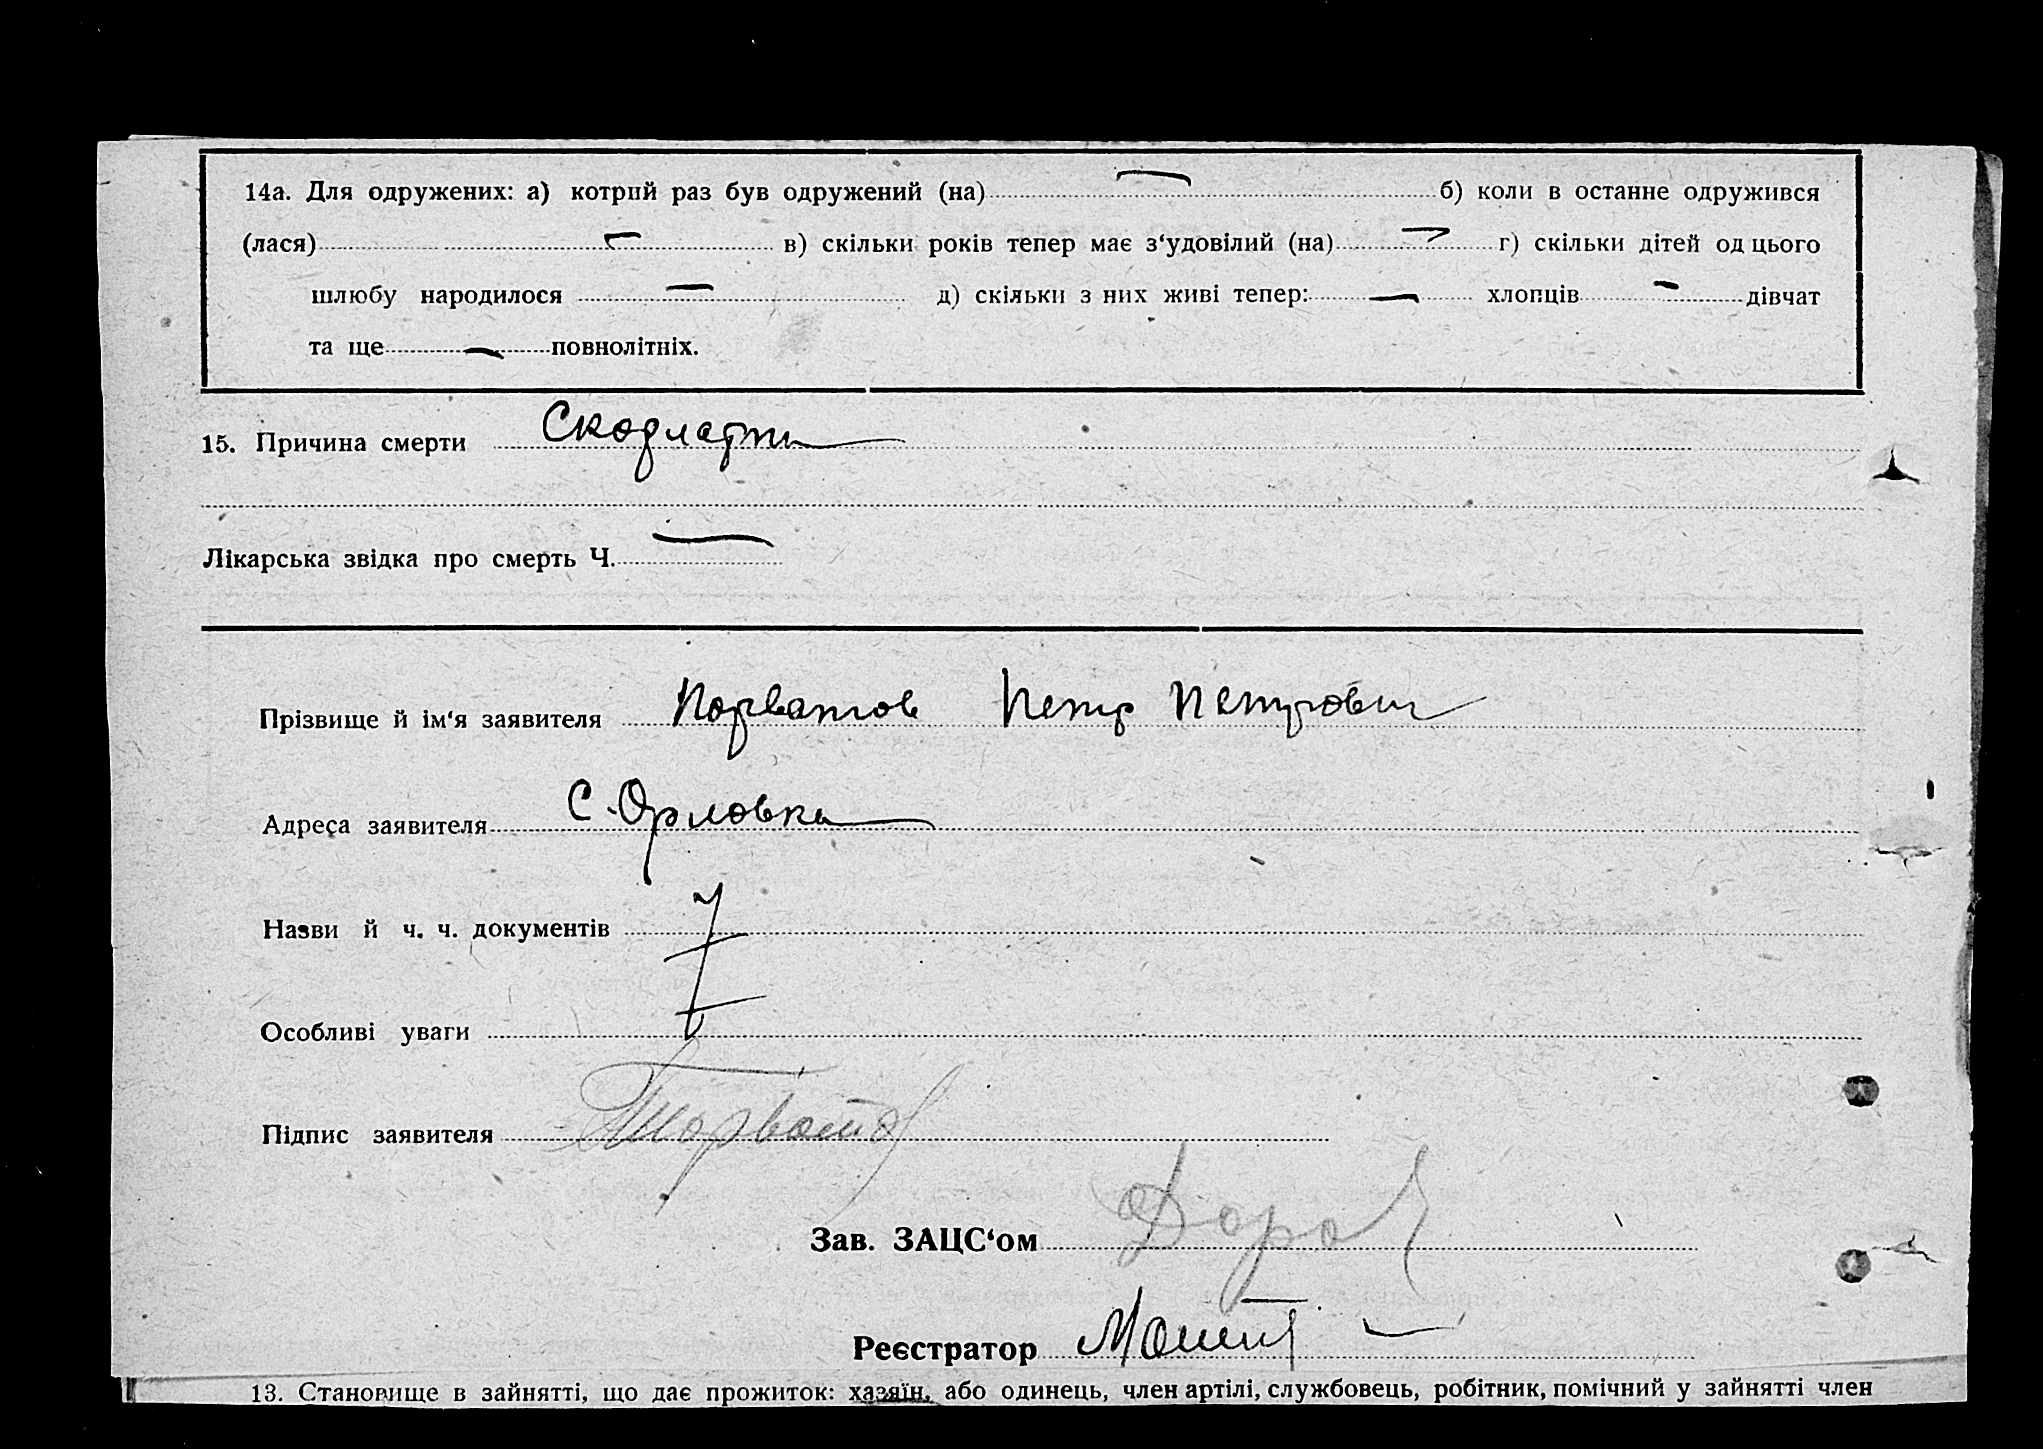 14а. Для одружених: а) котрий раз був одружений (на) — б) коли в останне одружився
(лася) — в) скільки років тепер має з‘удовілий (на) — г) скільки дітей од цього
шлюбу народилося — д) скільки з них живі тепер: — хлопців — дівчат
та ще — повнолітніх.
15. Причина смерти
Лікарська звідка про смерть Ч. —
Прізвище й ім‘я заявителя Порватов Петр Петрович
Адреса заявителя С. Орловка
Назви й ч. ч. документів
Особливі уваги
Підпис заявителя Порватов
Зав. ЗАЦС‘ом
Реєстратор
13. Становище в зайнятті, що дає прожиток: хазяїн, або одинець, член артілі, службовець, робітник, помічний у зайнятті член